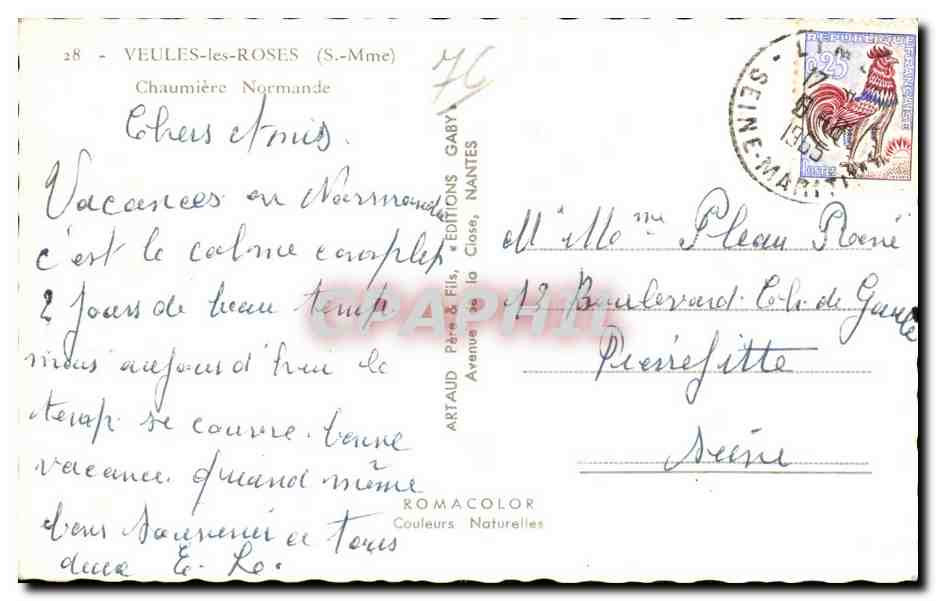 28 - VEULES-les-ROSES (S.-Mme)
Chaumière Normande
76
Chers Amis.
Vacances en Normandie
c'est le calme complet
2 jours de beau temp
mais aujourd'hui le
temp se couvre. bonne
vacance quand même
bons souvenir a tous
deux E. Lo.
ARTAUD Père & Fils, « EDITIONS GABY »
Avenue de la Close, NANTES
ROMACOLOR
Couleurs Naturelles
REPUBLIQUE FRANÇAISE
0,25
POSTES
17
1965
SEINE-MARITIME
Mr Mme Pleau René
13 Boulevard. Ch. de Gaulle
Pierrefitte
Seine
CPAPHIL